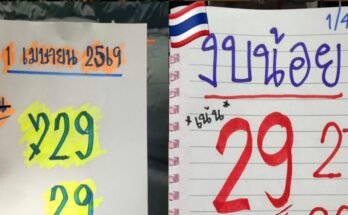 1 เมษายน 2569
729
29
1/4
งบน้อย
*เน้น*
29 2